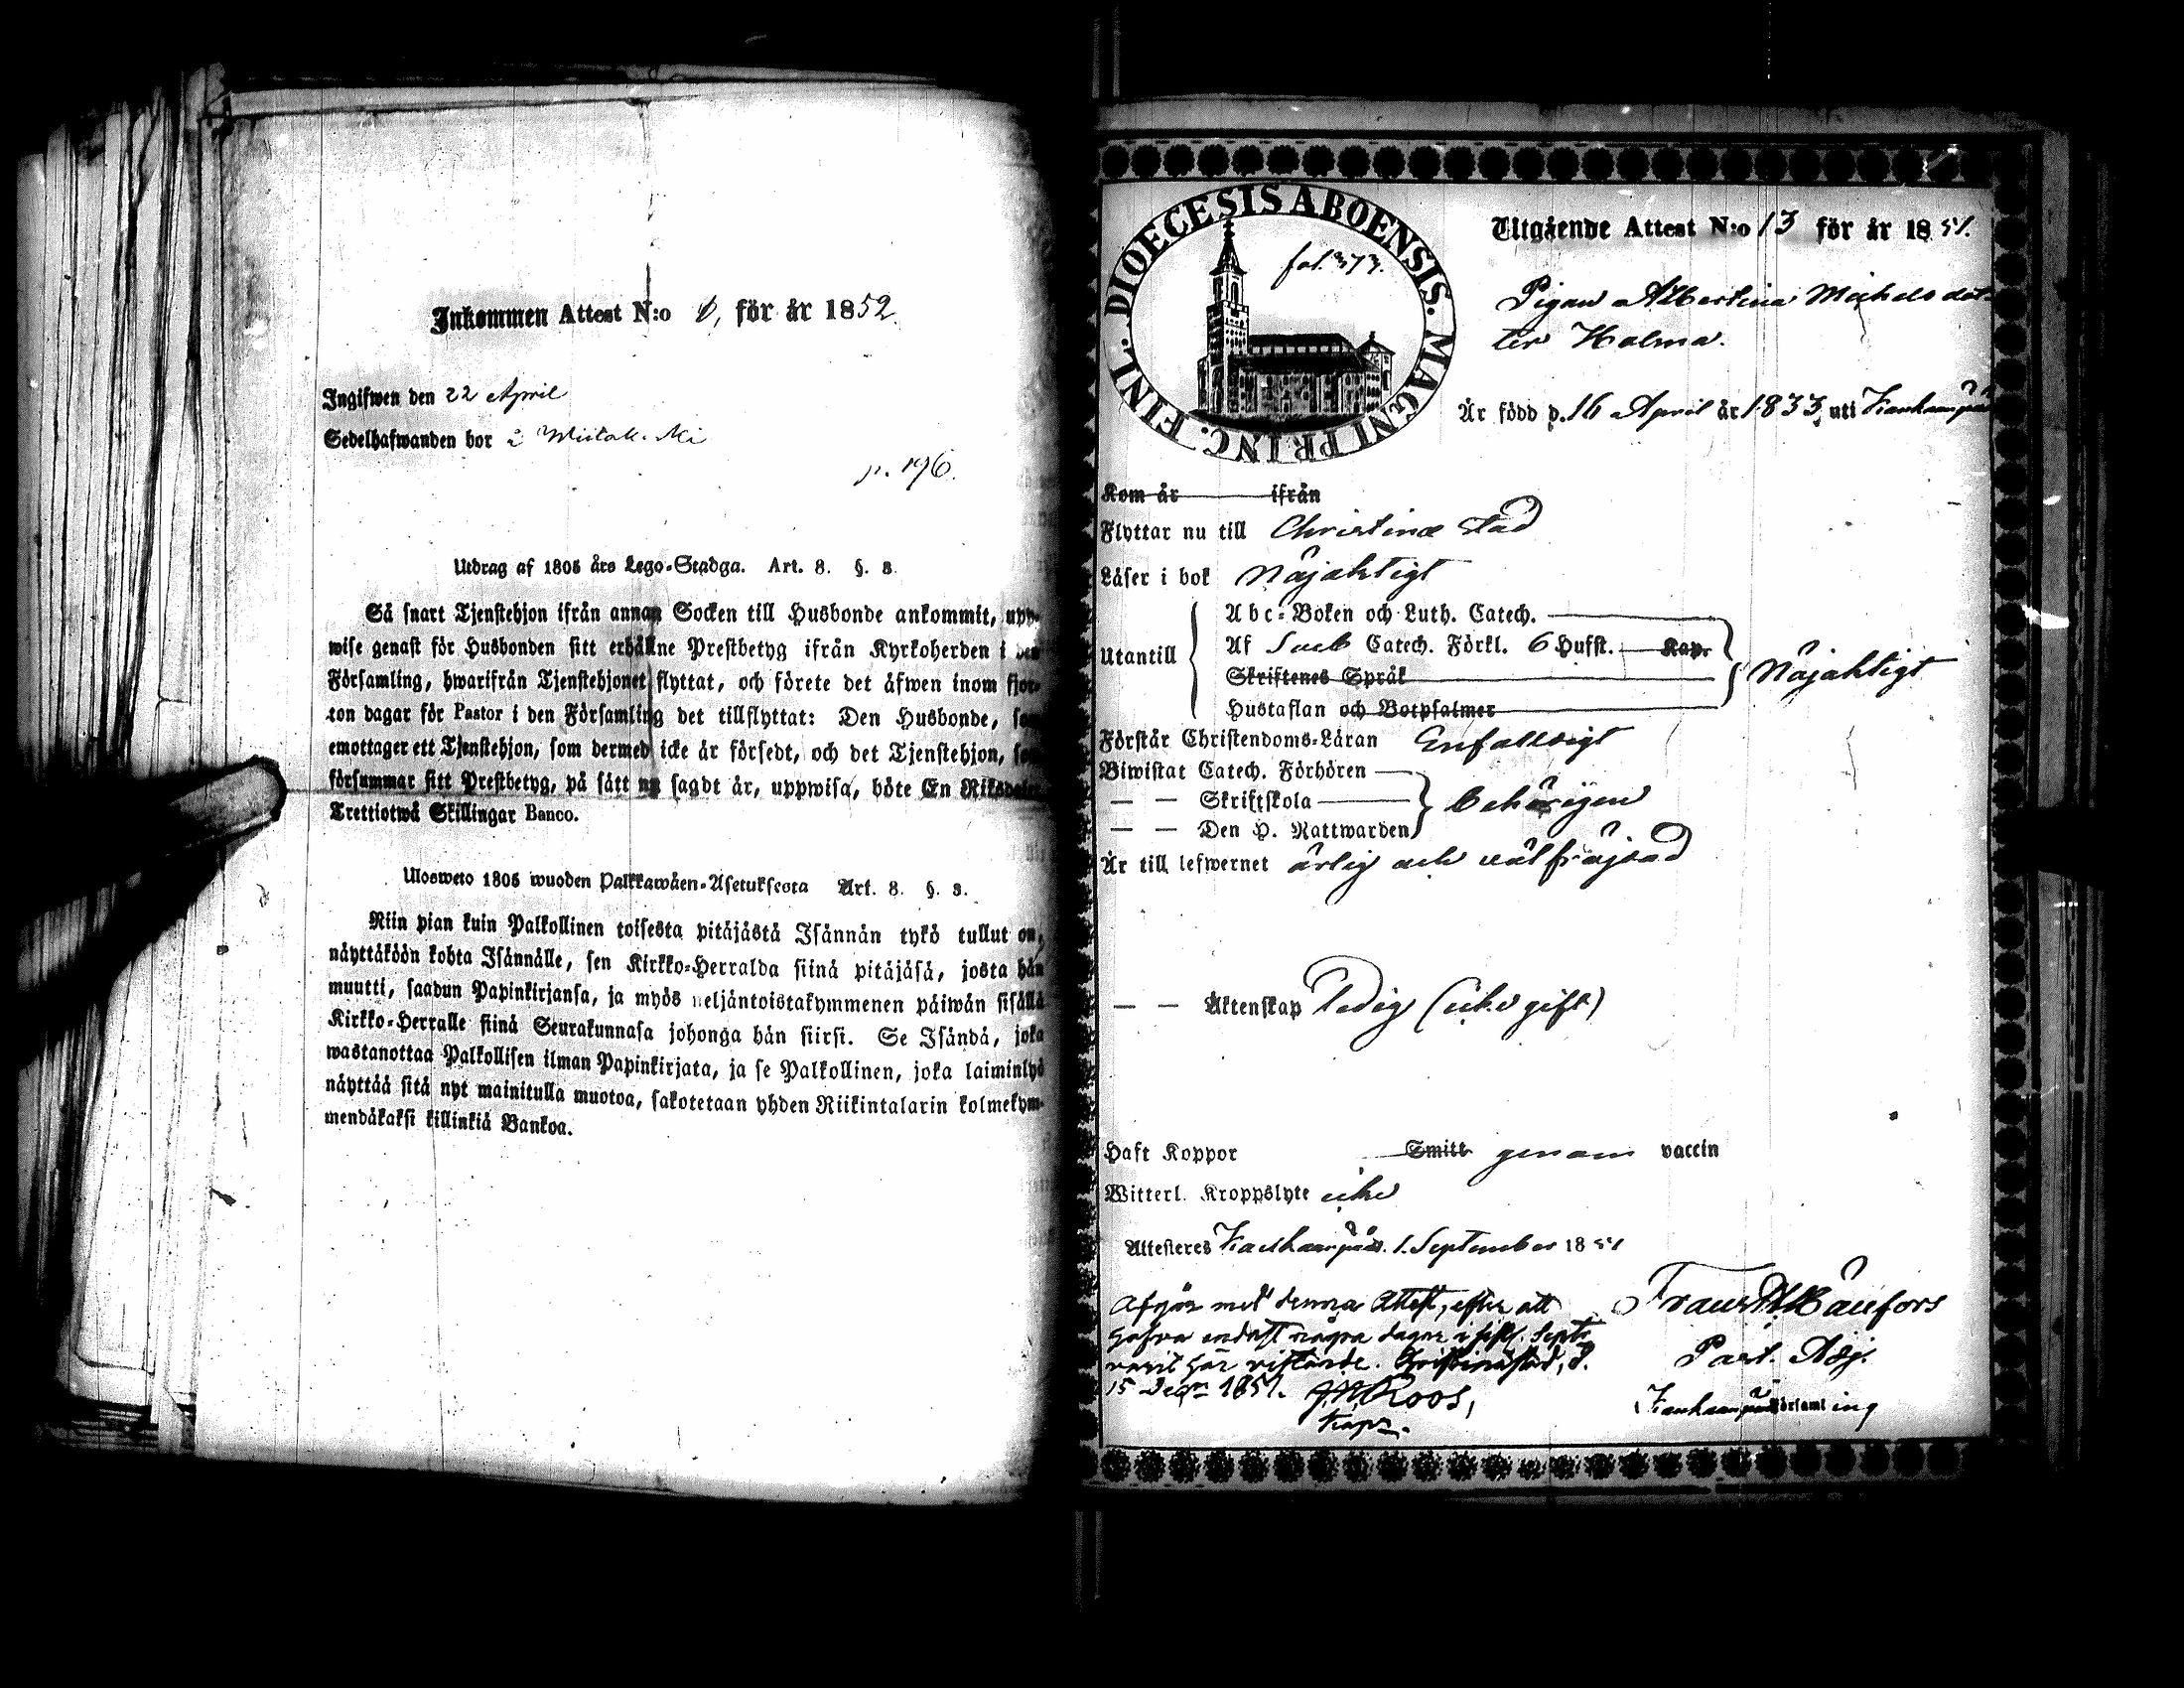 Inkommen Attest N:o för år 1852.
Ingifwen den 22 April
Sedelhafwanden bor å
p. 196.
Utdrag af 1805 års Lego-Stadga. Art. 8. §. 3.
Så snart Tjenstehjon ifrån annan Socken till Husbonde ankommit, upp-
wise genast för Husbonden sitt erhållne Prestbetyg ifrån Kyrkoherden i den
Församling, hwarifrån Tjenstehjonet flyttat, och förete det äfwen inom fjor-
ton dagar för Pastor i den Församling det tillflyttat: Den Husbonde, som
emottager ett Tjenstehjon, som dermed icke är försedt, och det Tjenstehjon, som
försummar sitt Prestbetyg, på sätt nu sagdt är, uppwisa, böte En Riksdaler
Trettiotwå Skillingar Banco.
Ulosweto 1805 wuoden Palkkawäen-Asetuksesta Art. 8. §. 3.
Niin pian kuin Palkollinen toisesta pitäjästä Isännän tykö tullut on,
näyttäköön kohta Isännälle, sen Kirkko-Herralda siinä pitäjäsä, josta hän
muutti, saadun Papinkirjansa, ja myös neljäntoistakymmenen päiwän sisällä
Kirkko-Herralle siinä Seurakunnasa johonga hän siirsi. Se Isändä, joka
wastanottaa Palkollisen ilman Papinkirjata, ja se Palkollinen, joka laiminlyö
näyttää sitä nyt mainitulla muotoa, sakotetaan yhden Riikintalarin kolmekym-
mendäkaksi killinkiä Bankoa.
DIOECESIS ABOENSIS. MAGNI PRINC. FINL.
fol. 373.
Utgående Attest N:o 13 för år 1851.
Pigan Albertina Michelsdot-
ter Holma.
Är född d. 16 April år 1833, uti Kankaanpää
Kom år ifrån
Flyttar nu till Christinæ stad
Läser i bok Nöjaktigt
Utantill
Abc-Boken och Luth. Catech.
Af Sveb Catech. Förkl. 6 Hufst. Kap.
Skriftenes Språk
Nöjaktigt
Hustaflan och Botpsalmer
Förstår Christendoms-Läran Enfalldigt
Biwistat Catech. Förhören
— — Skriftskola
behörigen
— — Den H. Nattwarden
Är till lefwernet ärlig och välfräjdad
— — Äktenskap Ledig (icke gift)
Haft Koppor Smitt genom vaccin
Witterl. Kroppslyte icke
Attesteres Kankaanpää. 1. September 1851
Frans
Past. Adj.
Kankaanpää församling
Afgår med denna Attest, efter att
hafva endast några dagar i sistl. Septr
varit här vistande. Christinæstad, d.
15 Decr 1851. Roos,